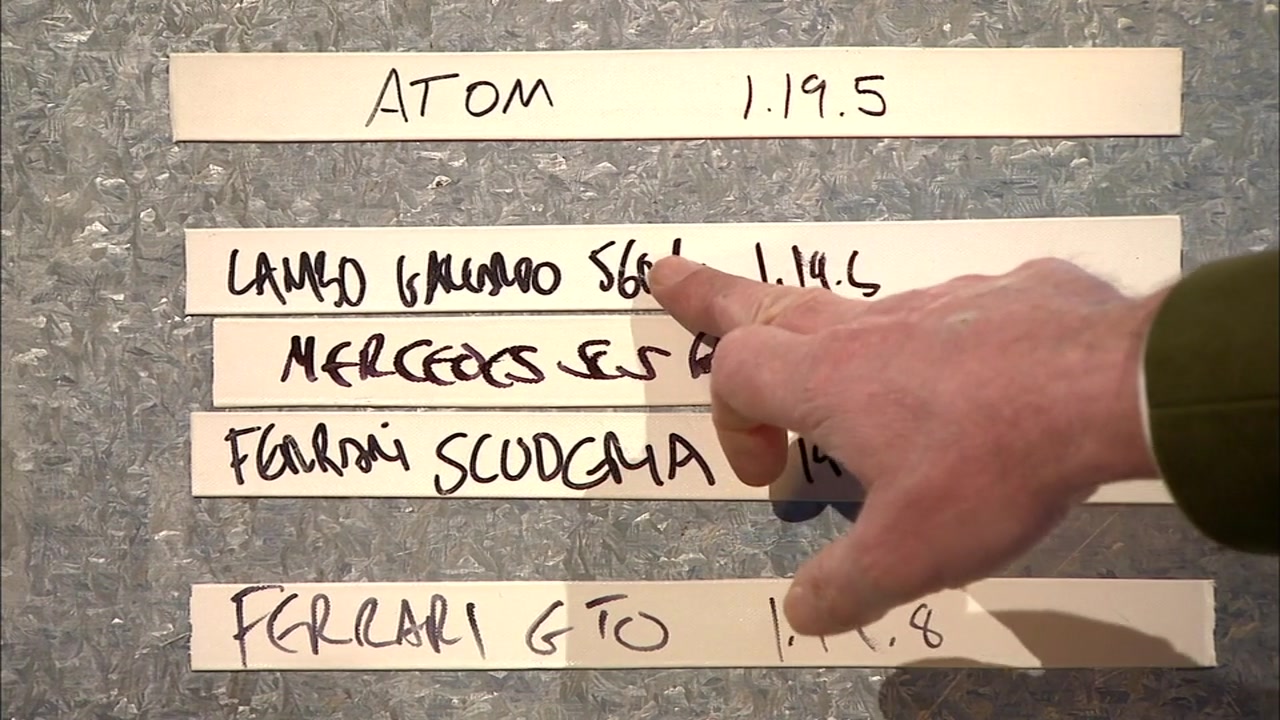 ATOM 1.19.5
LAMBO GALLARDO 560 1.19.5
MERCEDES SLS
FERRARI SCUDERIA 19
FERRARI GTO 8